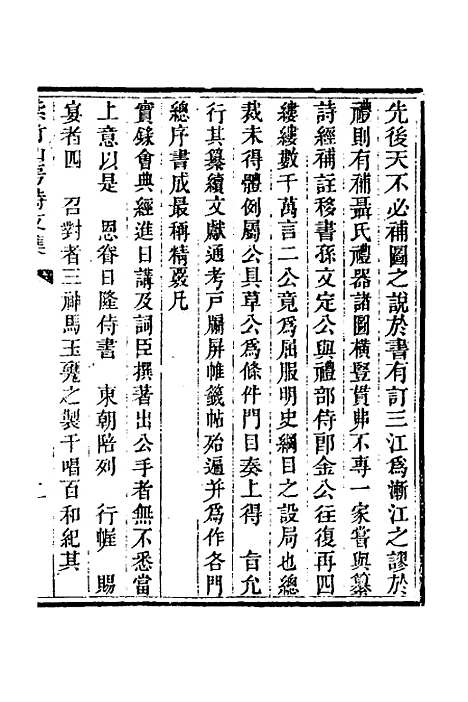 先後天不必補圖之說於書有訂三江爲漸江之謬於
禮則有補聶氏禮器諸圖橫豎貫弗不專一家嘗與纂
詩經補註移書孫文定公與禮部侍郎金公往復再四
縷縷數千萬言二公竟爲屈服明史綱目之設局也總
裁未得體例屬公具草公爲條件門目奏上得　旨允
行其纂續文獻通考戸牖屏帷籤帖殆遍并爲作各門
總序書成最稱精覈凡
實錄會典經進日講及詞臣撰著出公手者無不悉當
上意以是　恩眷日隆侍書　東朝陪列　行幄　賜
宴者四　召對者三神馬玉甕之製千唱百和紀其
山房詩文集